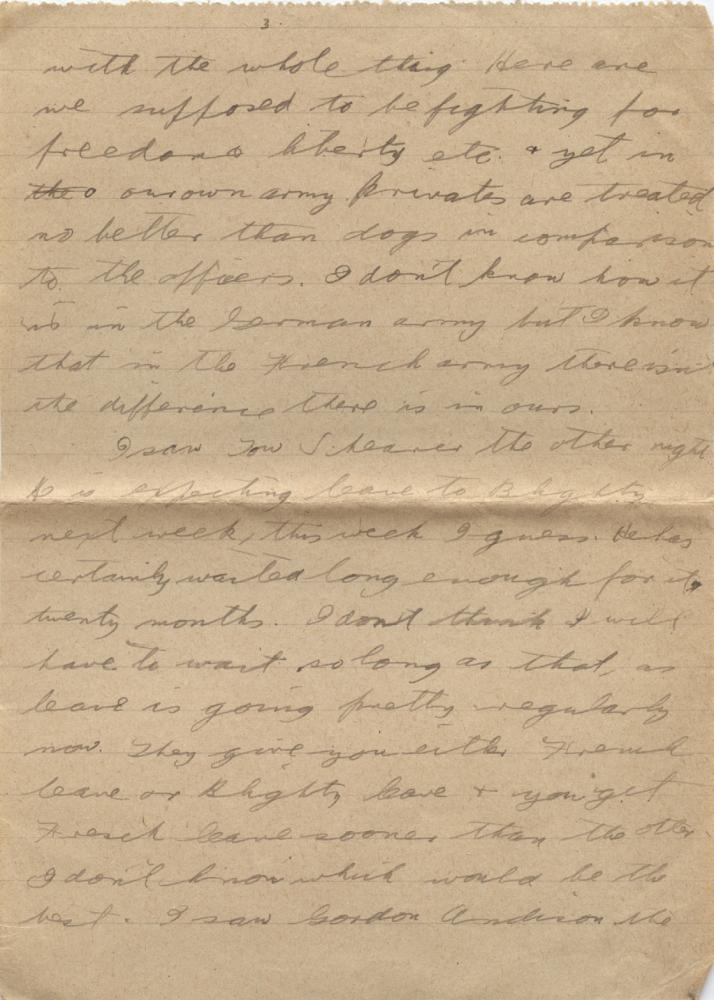 3
with the whole thing. Here are
we supposed to be fighting for
freedom & liberty etc. & yet in
the o our own army Privates are treated
no better than dogs in comparison
to the officers. I don't know how it
is in the German army but I know
that in the French army there isn't
the difference there is in ours.
I saw Tom Shearer the other night
He is expecting leave to Blighty
next week, this week I guess. He has
certainly waited long enough for it,
twenty months. I don't think I will
have to wait so long as that, as
leave is going pretty regularly
now. They give you either French
leave or Blighty leave & you get
French leave sooner than the other.
I don't know which would be the
best. I saw Gordon Andison the